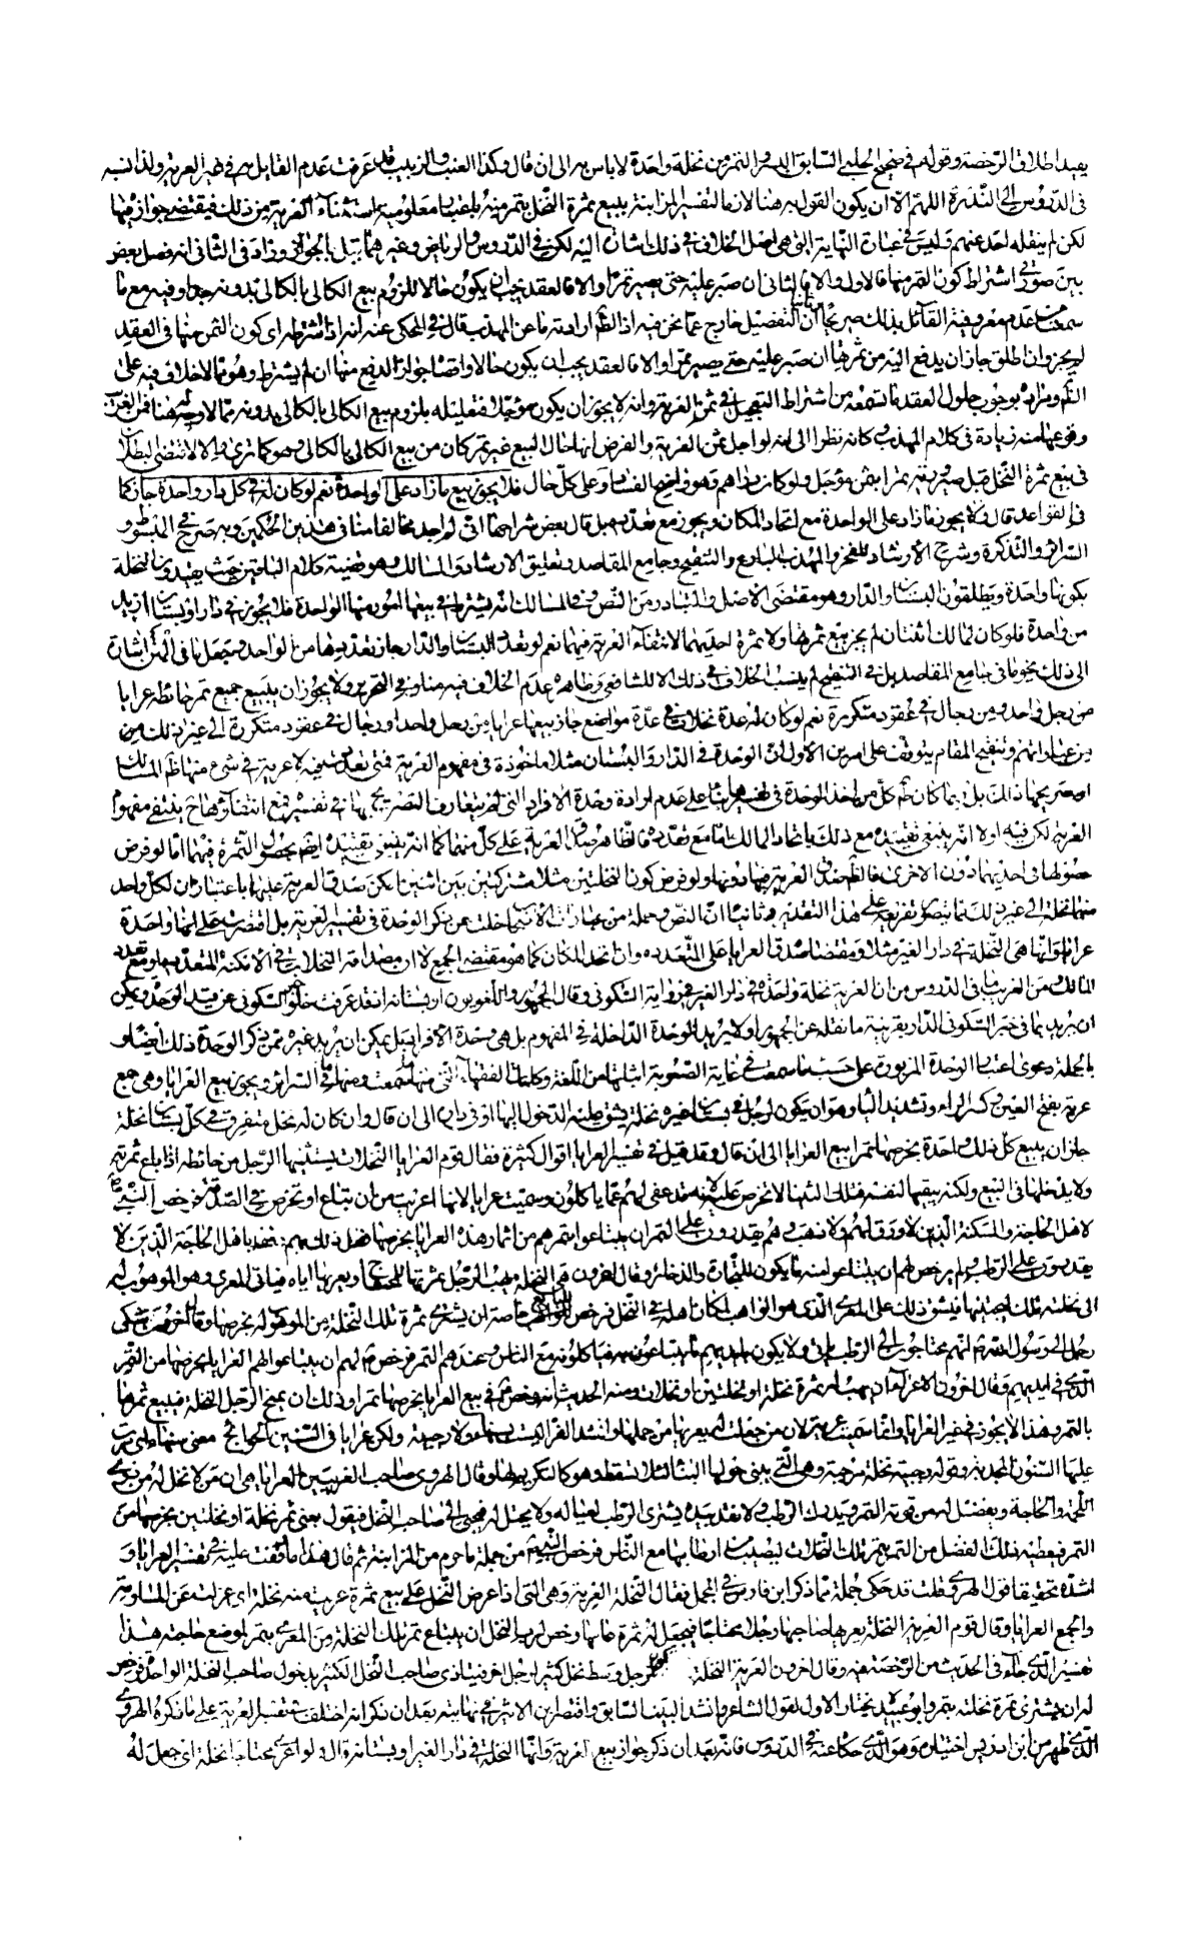 يفيد اطلاق الرخصة وقوله في صحيح الحلبي السابق البسر والتمر من نخلة واحدة لا باس به الى ان قال وكذا العنب والزبيب قد عرفت عدم القايل به في غير العرية ولذا نسبه
في الدروس الى الندرة اللهم الا ان يكون القول به هنا لازما لتفسير المزابنة ببيع ثمرة النخل بتمر منه باعتبار معلومية استثناء العرية من ذلك فيقتضي جوازه فيها
لكن لم ينقله احد عنهم وليس في عبارة النهاية التي هي اصل الخلاف في ذلك اشارة اليه لكن في الدروس والرياض وغيرهما قيل بالجواز وزاد في الثاني انه فصل بعض
بين صورتي اشتراط كون التمر منها فالاول والا فالثاني ان صبر عليه حتى يصير تمرا والا فالعقد يجب ان يكون حالا للزوم بيع الكالي بالكالي بدونه جدا وفيه مع ما
سمعت من عدم معروفية القائل بذلك صريحا ان التفصيل خارج عما نحن فيه اذ الظاهر ارادته ما عن المهذب قال في المحكي عنه انه اذا اشترط اي كون الثمن منها في العقد
لم يجز وان اطلق جاز ان يدفع اليه من ثمرتها ان صبر عليه حتى يصير تمرا والا فالعقد يجب ان يكون حالا واقصاه جواز الدفع منها ان لم يشترط وهو مما لا خلاف فيه على
الظاهر ومراده بوجوب حلول العقد ما تسمعه من اشتراط التعجيل في ثمن العرية وانه لا يجوز ان يكون مؤجلا فتعليله بلزوم بيع الكالي بالكالي بدونه مما لا وجه له هنا فمن الغريب
وقوعها منه زيادة في كلام المهذب وكانه نظر الى انه لو اجل ثمن العرية والفرض انها حال البيع غير تمر كان من بيع الكالي بالكالي وهو كما ترى والا لاقتضى البطلان
في بيع ثمرة النخل قبل صيرورته تمرا بثمن مؤجل ولو كان دراهم وهو واضح الفساد وعلى كل حال فلا يجوز بيع ما زاد على الواحدة نعم لو كان له في كل دار واحدة جاز كما
في القواعد قال ولا يجوز ما زاد على الواحدة مع اتحاد المكان ويجوز مع تعدده بل قال بعض شراحها اني لم اجد مخالفا منا في هذين الحكمين وبه صرح في المبسوط و
السرائر والتذكرة وشرح الارشاد للفخر والمهذب البارع والتنقيح وجامع المقاصد وتعليق الارشاد والمسالك وهو قضية كلام الباقين حيث يقيدون النخلة
بكونها واحدة ويطلقون البستان والدار وهو مقتضى الاصل والمتبادر من النص وفي المسالك انه يشترط في بيعها امور منها الوحدة فلا يجوز في دار او بستان ازيد
من واحدة فلو كان لمالك اثنتان لم يجز بيع ثمرتها ولا ثمرة احديهما لانتفاء العرية فيهما نعم لو تعدد البستان والدار جاز تعددها من الواحد وجعل ما في المتن اشارة
الى ذلك ونحو ما في جامع المقاصد بل في التنقيح لم ينسب الخلاف في ذلك الا للشافعي وظاهره عدم الخلاف فيه منا وفي التحرير ولا يجوز ان يبيع جميع تمر حائطه عرايا
من رجل واحد ومن رجال في عقود متكررة نعم لو كان له عدة نخلات في عدة مواضع جاز بيعها عرايا من رجل واحد او رجال في عقود متكررة الى غير ذلك من
من عباراتهم وتنقيح المقام يتوقف على امرين الاول ان الوحدة في الدار والبستان مثلا ماخوذة في مفهوم العرية فمتى تعدد ... لا عرية في شيء منها كما في المسالك

العرية لكن فيه اولا انه ينبغي تقييده مع ذلك باتحاد المالك اما مع تعدده فالظاهر صدق العرية على كل منهما كما انه ينبغي تقييده ايضا بحصول الثمرة فيهما اما لو فرض
حصولها في احديهما دون الاخرى فالظاهر صدق العرية فيها دونها ولو فرض كون النخلتين مثلا مشتركتين بين اثنين امكن صدق العرية عليها باعتبار ان لكل واحد
منهما نخلة الى غير ذلك مما يتصور تفريعه على هذا التقدير وثانيا ان النص وجملة من عبارات الاصحاب خلت عن ذكر الوحدة في تفسير العرية بل اقتصر على انها واحدة
عرايا وانها هي النخلة في دار الغير مثلا ومقتضاه صدق العرايا على المتعددة وان اتحد المكان كما هو مقتضى الجمع لا ان مصداقه النخلات في الامكنة المتعددة ومع تعدد
المالك ومن الغريب ما في الدروس من ان العرية نخلة واحدة في دار الغير في رواية السكوني وقال الجمهور واللغويون او بستانه اذ قد عرفت خلو خبر السكوني عن قيد الوحدة ويمكن
ان يريد بما في خبر السكوني الدار بقرينة ما نقله عن الجمهور او لا يريد الوحدة الداخلة في المفهوم بل هي وحدة الافراد بل يمكن ان يريد غيره ممن ذكر الوحدة ذلك ايضا و
بالجملة دعوى اعتبار الوحدة المزبورة على حسب ما سمعت في غاية الصعوبة اثباتها من اللغة وكلمات الفقهاء التي منها ما سمعت ومنها ما في السرائر ويجوز بيع العرايا وهي جمع
عرية بفتح العين وكسر الراء وتشديد الياء وهو ان يكون لرجل في بستان غيره نخلة يشق عليه الدخول اليها او في دار الى ان قال وان كان له نخل متفرق في كل بستان نخلة
جاز ان يبيع كل ذلك واحدة بخرصها تمرا بيع العرايا الى ان قال وقد قيل في تفسير العرايا اقوال كثيرة فقال قوم العرايا النخلات يستثنيها الرجل من حائطه اذا باع ثمرته
ولا يدخلها في البيع ولكنه يبقيها لنفسه فتلك الثنيا لا تخرص عليه لانه قد عفي لهم عما ياكلون وسميت عرايا لانها اعريت من ان تباع او تخرص في الصدقة فرخص النبي ص
لاهل الحاجة والمسكنة الذين لا ورق لهم ولا ذهب وهم يقدرون على التمر ان يبتاعوا بتمرهم من اثمار هذه العرايا بخرصها فعل ذلك بهم رفقا باهل الحاجة الذين لا
يقدرون على الرطب ولم يرخص لهم ان يبتاعوا منه ما يكون للتجارة والذخائر وقال اخرون هي النخلة يهب الرجل ثمرتها للمحتاج ويعريها اياه فياتي المعرى وهو الموهوب له
الى نخلته تلك ليجتنيها فيشق ذلك على المعري الذي هو الواهب لمكان اهله في النخل فرخص للبايع خاصة ان يشتري ثمرة تلك النخلة من الموهوبة له بخرصها وقال اخرون شكى
رجال الى رسول الله ص انهم محتاجون الى الرطب ياتي ولا يكون بايديهم ما يبتاعون به فياكلونه مع الناس وعندهم التمر فرخص لهم ان يبتاعوا لهم العرايا بخرصها من التمر
الذي في ايديهم وقال اخرون الاعراء ان يهب له ثمرة نخلة او نخلتين او نخلات ومنه الحديث انه رخص في بيع العرايا بخرصها تمرا وذلك ان يمنح الرجل النخلة فيبيع ثمرها
بالتمر وهذا لا يجوز في غير العرايا وانما سميت عرية لان من جعلت له يعريها من حملها وانشد الفراء ليست بسنهاء ولا رجبية ولكن عرايا في السنين الجوائح معنى سنهاء اي اتت
عليها السنون المجدبة وقوله رجبية نخلة مرجبة وهي التي يبنى حولها البناء لئلا تسقط وهو كالتكريم لها وقال الهروي صاحب الغريبين العرايا هي ان من لا نخل له من ذوي
اللحمة والحاجة ويفضل له من قوته التمر يدرك الرطب ولا نقد بيده يشتري الرطب لعياله ولا نخل له فيجيء الى صاحب النخل فيقول بعني ثمر نخلة او نخلتين بخرصها من
التمر فيعطيه ذلك الفضل من التمر بثمر تلك النخلات ليصيب من ارطابها مع الناس فرخص النبي ص من جملة ما حرم من المزابنة ثم قال هذا ما وقفت عليه في تفسير العرايا و
اشده تحقيقا قول الهروي قلت قد حكى جملة مما ذكر ابن فارس في المجمل فقال النخلة العرية وهي التي اذا عرض النخل على بيع ثمره عريت منه نخلة اي عزلت عن المساومة
والجمع العرايا وقال قوم العرية النخلة يعريها صاحبها رجلا محتاجا فيجعل له ثمرة عامها ورخص لرب النخل ان يبتاع ثمر تلك النخلة من المعرى بتمر لموضع حاجته هذا
تفسير الذي جاء في الحديث من الرخصة فيه وقال اخرون العرية النخلة تكون لرجل وسط نخل كثير لرجل اخر فيتاذى صاحب النخل الكثير بدخول صاحب النخلة الواحدة فرخص
له ان يشتري ثمرة نخلته بتمر وابو عبيد يختار الاول لقول الشاعر وانشد البيت السابق واقتصر ابن الاثير في نهايته بعد ان ذكر انه اختلف في تفسير العرية على ما ذكره الهروي
الذي ظهر من ابن ادريس اختياره وهو الذي حكاه عنه في الدروس فانه بعد ان ذكر جواز بيع العرية وانها النخلة في دار الغير او بستانه قال ولو اعرى محتاجا نخلة اي جعل له